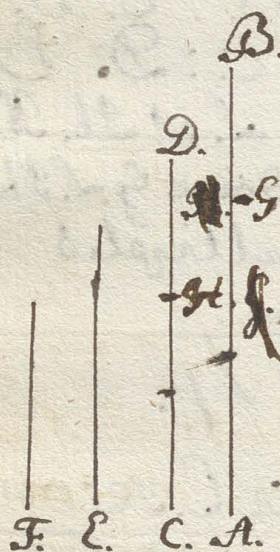 B.
D.
G
H
F. E. C. A.